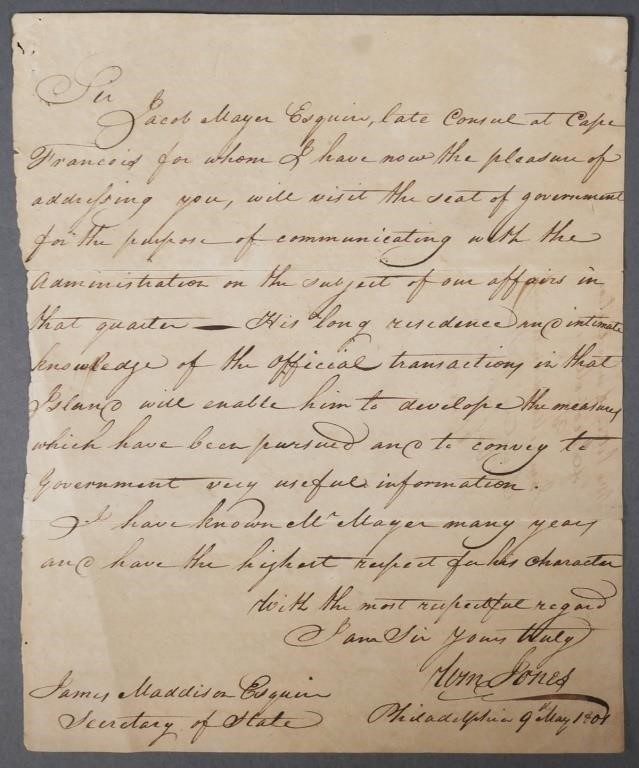 Sir
Jacob Mayer Esquire, late Consul at Cape
Francois for whom I have now the pleasure of
addressing you, will visit the seat of government
for the purpose of communicating with the
Administration on the subject of our affairs in
that quarter — His long residence and intimate
knowledge of the official transactions in that
Island will enable him to develope the measures
which have been pursued and to convey to
Government very useful information.
I have known Mr Mayer many years
and have the highest respect for his character
With the most respectful regard
I am Sir Yours truly
Wm Jones
James Maddison Esquire
Secretary of State
Philadelphia 9th May 1801